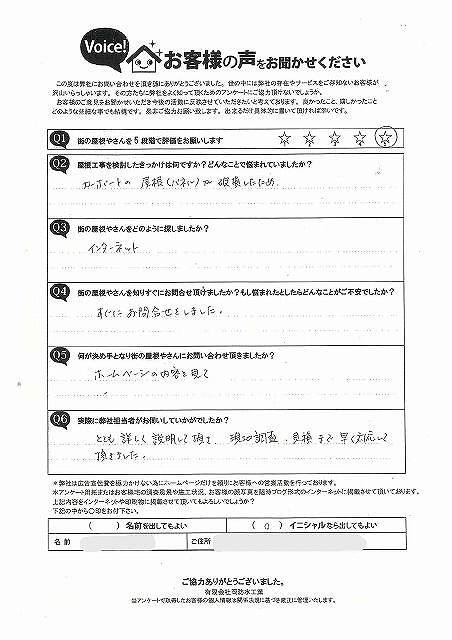 Voice! お客様の声をお聞かせください
この度は弊社にお問い合わせを頂き誠にありがとうございました。世の中には弊社の存在やサービスをご存知ないお客様が
沢山いらっしゃいます。その方たちに弊社をよく知って頂くためのアンケートにご協力頂けないでしょうか。
お客様のご意見をお聞かせいただき今後の活動に反映させていただきたいと考えております。良かったこと、嬉しかったこと
どのような些細な事でも結構です。是非ご協力お願い致します。出来るだけ具体的に書いて頂ければ幸いです。
Q1 街の屋根やさんを5段階で評価をお願いします ☆ ☆ ☆ ☆ ☆
Q2 屋根工事を検討したきっかけは何ですか？どんなことで悩まれていましたか？
カーポートの屋根（パネル）が破損したため
Q3 街の屋根やさんをどのように探しましたか？
インターネット
Q4 街の屋根やさんを知りすぐにお問合せ頂けましたか？もし悩まれたとしたらどんなことがご不安でしたか？
すぐにお問合せをしました。
Q5 何が決め手となり街の屋根やさんにお問い合わせ頂きましたか？
ホームページの内容を見て
Q6 実際に弊社担当者がお伺いしていかがでしたか？
とても詳しく説明して頂き、現場調査、見積まで早く対応して
頂きました。
＊弊社は広告宣伝費を極力かけない為にホームページだけを頼りにお客様への営業活動を行っております。
本アンケート用紙またはお客様宅の調査風景や施工状況、お客様の顔写真を随時ブログ形式のインターネットに掲載させて頂いております。
上記内容をインターネットや印刷物に掲載させて頂いてもよろしいでしょうか？
下記の中から〇印をお付下さい。
（　）名前を出してもよい （ ○ ）イニシャルなら出してもよい
名 前 ご住所
ご協力ありがとうございました。
有限会社岡防水工業
当アンケートで取得したお客様の個人情報は関係法規に基づき厳正に管理いたします。